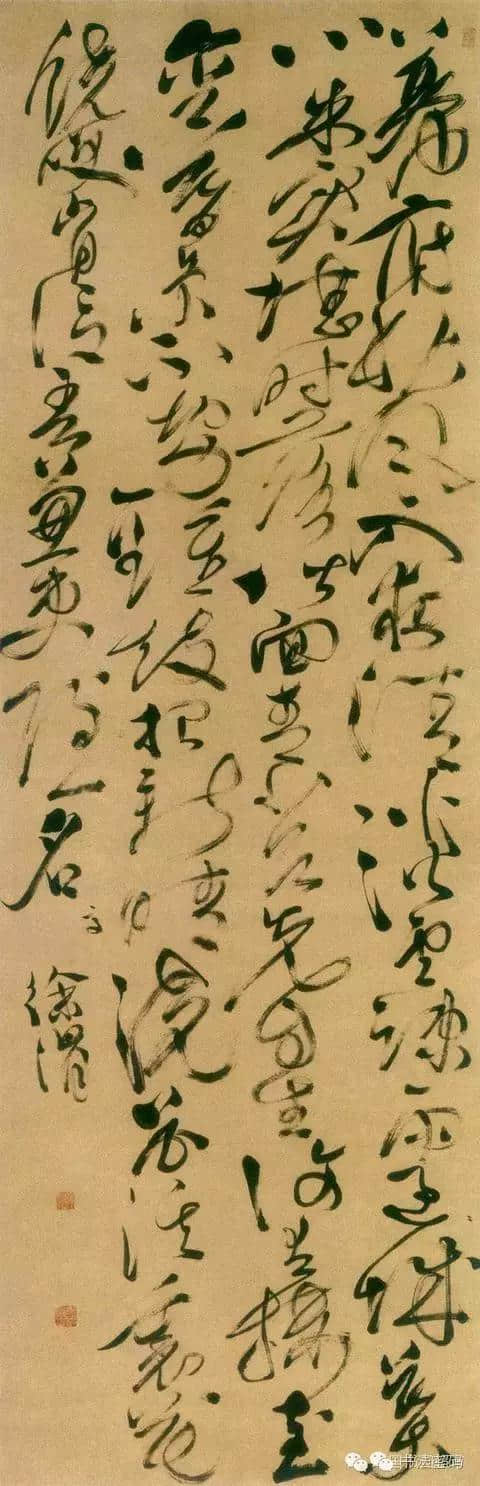 幕府秋風入夜清淡雲疎雨過城葉
心朱實堪時落階面青苔先自生復有樓臺
銜暮景不勞鐘鼓報新晴浣花溪裏花
饒咲肯信吾兼吏隱名
高
徐渭
国书法密码